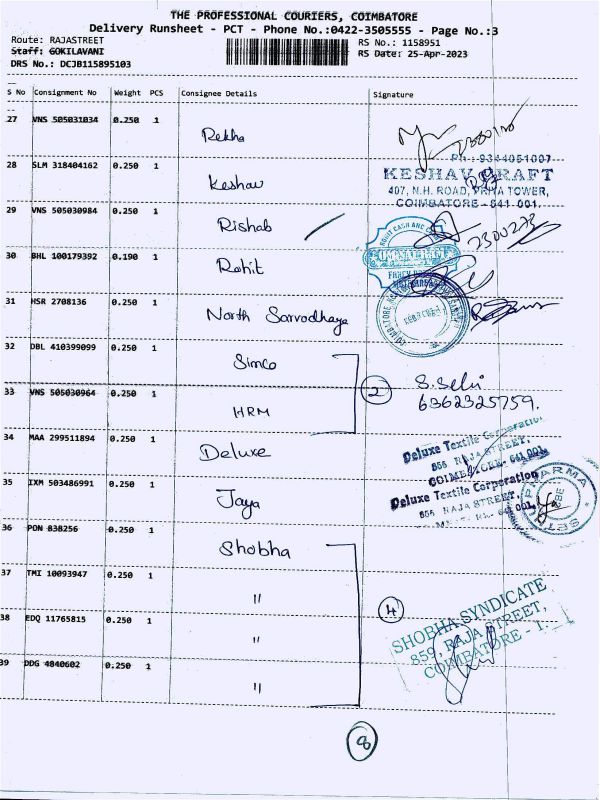 THE PROFESSIONAL COURIERS, COIMBATORE
Delivery Runsheet - PCT - Phone No.:0422-3505555 - Page No.:3
Route: RAJASTREET
RS No.: 1158951
Staff: GOKILAVANI
RS Date: 25-Apr-2023
DRS No.: DCJB115895103
S No Consignment No Weight PCS Consignee Details Signature
27 VNS 505031034 0.250 1 Rekha
28 SLM 318404162 0.250 1 Keshav
Ph : 9344051007
KESHAV KRAFT
407, N.H. ROAD, PRIYA TOWER,
COIMBATORE - 641 001.
29 VNS 505030984 0.250 1 Rishab
30 BHL 100179392 0.190 1 Rohit
31 HSR 2708136 0.250 1 North Sarvodhaya
32 DBL 410399099 0.250 1 Simco
33 VNS 505030964 0.250 1 HRM
2
S. Selvi
6362325759.
34 MAA 299511894 0.250 1 Deluxe
Deluxe Textile Corporation
856 RAJA STREET,
COIMBATORE. 641 001.
35 IXM 503486991 0.250 1 Jaya
Deluxe Textile Corporation
856 RAJA STREET,
641 001.
PHARMA
36 PON 838256 0.250 1 Shobha
37 TMI 10093947 0.250 1 "
38 EDQ 11765815 0.250 1 "
39 DDG 4840602 0.250 1 "
4
SHOBHA SYNDICATE
859, RAJA STREET,
COIMBATORE - 1.
8